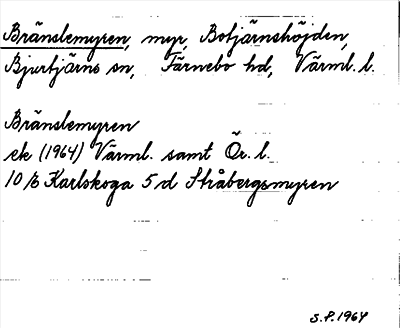 Bränslemyren, myr, Botjärnshöjden,
Bjurtjärns sn, Färnebo hd, Värml. l.
Bränslemyren
ek (1964) Värml. samt Ör. l.
10 E Karlskoga 5 d Stråbergsmyren
S.P. 1964